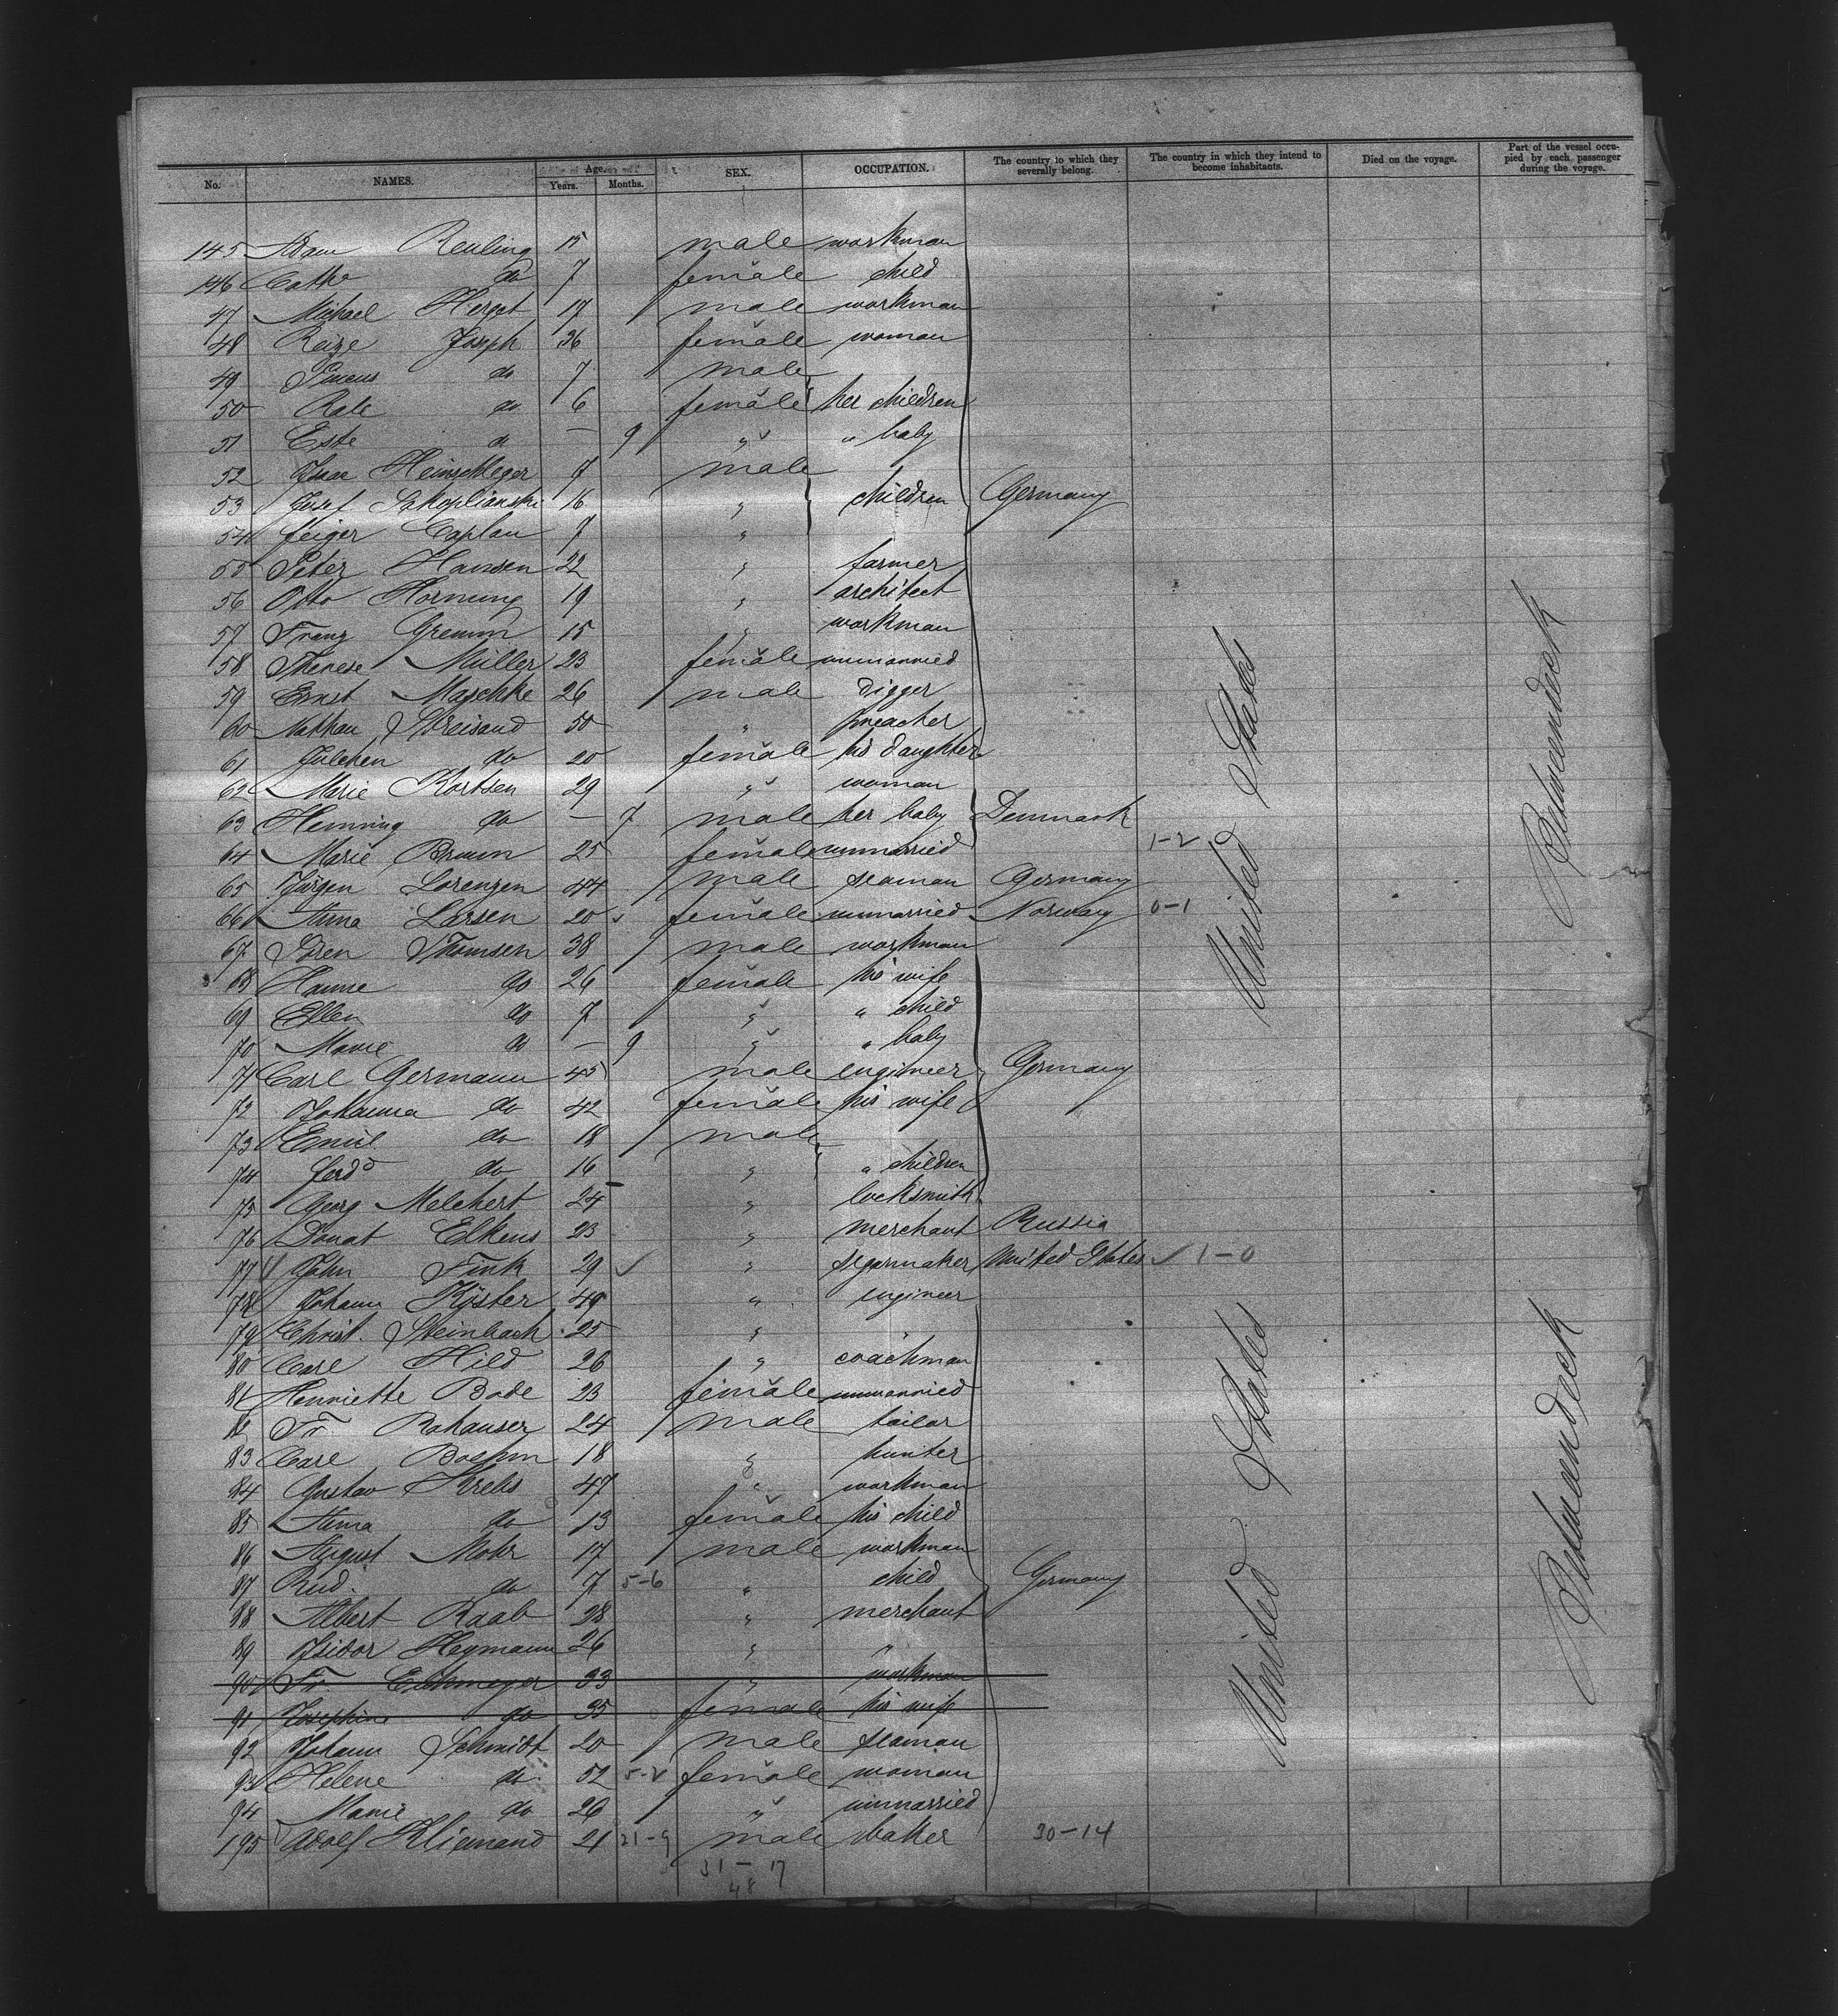 No. NAMES. Age. Years. Months. SEX. OCCUPATION. The country to which they severally belong. The country in which they intend to become inhabitants. Died on the voyage. Part of the vessel occupied by each passenger during the voyage.
145 Adam Reuling 15 male workman
146 Cathe do 7 female child
47 Michael Hergot 17 male workman
48 Reize Joseph 36 female woman
49 Pincus do 7 male
50 Rale do 6 female her children
51 Este do — 9 " " baby
52 Isaac Heimschleger 7 male
53 Josef Sakoplianski 16 " children Germany
54 Feiger Caplan 7 "
55 Peter Hansen 22 " farmer
56 Otto Hornung 19 " architect
57 Franz Gremm 15 " workman
58 Therese Müller 23 female unmarried
59 Ernst Maschke 26 male digger
60 Nathan Streisand 50 " preacher
61 Julchen do 20 female his daughter
62 Marie Kortsen 29 " woman
63 Henning do — 7 male her baby Denmark
64 Marie Bruun 25 female unmarried 1-2
65 Jürgen Lorenzen 44 male seaman Germany
66 Anna Larsen 20 female unmarried Norway 0-1
67 Sören Thomsen 38 male workman
68 Hanne do 26 female his wife
69 Ellen do 7 " " child
70 Marie do — 9 " " baby
71 Carl Germann 45 male engineer Germany
72 Johanna do 42 female his wife
73 Emil do 18 male
74 Ferdd do 16 " " children
75 Georg Melchert 24 " locksmith
76 Donat Elkens 23 " merchant Russia
77 John Fink 29 ✓ " segarmaker United States ✓ 1-0
78 Johann Köster 49 " engineer
79 Christ. Steinbach 25 " "
80 Carl Hild 26 " coachman
81 Henriette Bode 23 female unmarried
82 Fr Rohauser 24 male tailor
83 Carl Boehm 18 " hunter
84 Gustav Krebs 47 " workman
85 Anna do 13 female his child
86 August Mohr 17 male workman
87 Rud. do 7 5-6 " child Germany
88 Albert Raab 28 " merchant
89 Isidor Heymann 26 " "
90 Fr Eichmeyer 33 " workman
91 Josephine do 35 female his wife
92 Johann Schmidt 20 male seaman
93 Helene do 52 5-2 female woman
94 Marie do 26 " unmarried
195 Adolf Kliemand 21 21-9 male baker 30-14
31-17
48
United States
United States
Betweendeck
Betweendeck